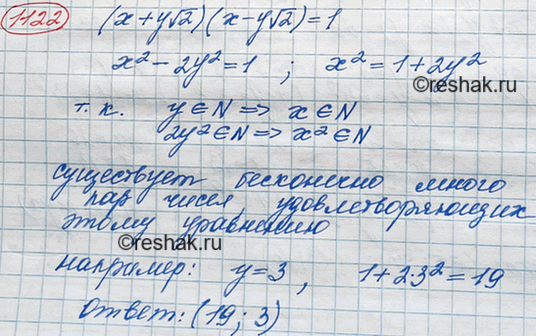 1122 (x+y√2)(x-y√2)=1
x²-2y²=1 ; x²=1+2y²
©reshak.ru
т.к. y∈N => x∈N
2y²∈N => x²∈N
существует бесконечно много
пар чисел, удовлетворяющих
этому уравнению
©reshak.ru
например: y=3, 1+2·3²=19
Ответ: (19; 3)